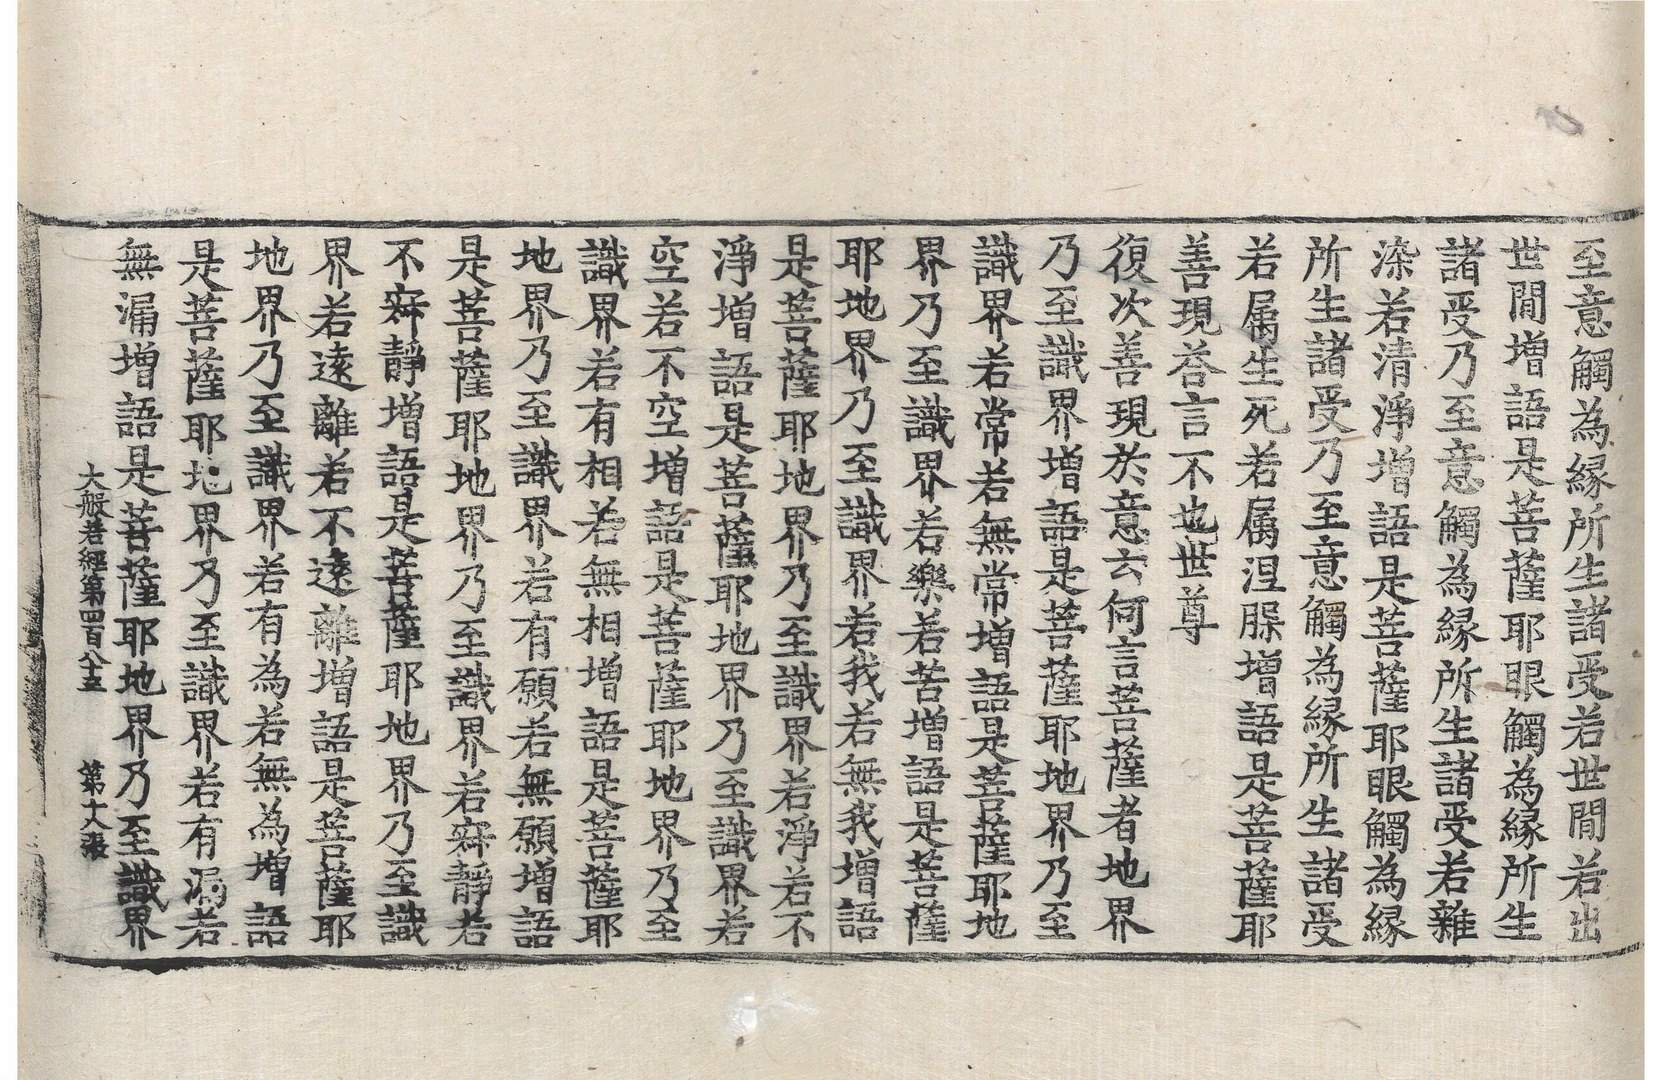 至意觸為縁所生諸受若世間若出
世間增語是菩薩耶眼觸為縁所生
諸受乃至意觸為縁所生諸受若雜
染若清淨增語是菩薩耶眼觸為縁
所生諸受乃至意觸為縁所生諸受
若属生死若属涅槃增語是菩薩耶
善現荅言不也世尊
復次善現於意云何言菩薩者地界
乃至識界增語是菩薩耶地界乃至
識界若常若無常增語是菩薩耶地
界乃至識界若樂若苦增語是菩薩
耶地界乃至識界若我若無我增語
是菩薩耶地界乃至識界若淨若不
淨增語是菩薩耶地界乃至識界若
空若不空增語是菩薩耶地界乃至
識界若有相若無相增語是菩薩耶
地界乃至識界若有願若無願增語
是菩薩耶地界乃至識界若寂靜若
不寂靜增語是菩薩耶地界乃至識
界若遠離若不遠離增語是菩薩耶
地界乃至識界若有為若無為增語
是菩薩耶地界乃至識界若有漏若
無漏增語是菩薩耶地界乃至識界
大般若經第四百八十五 第十六張